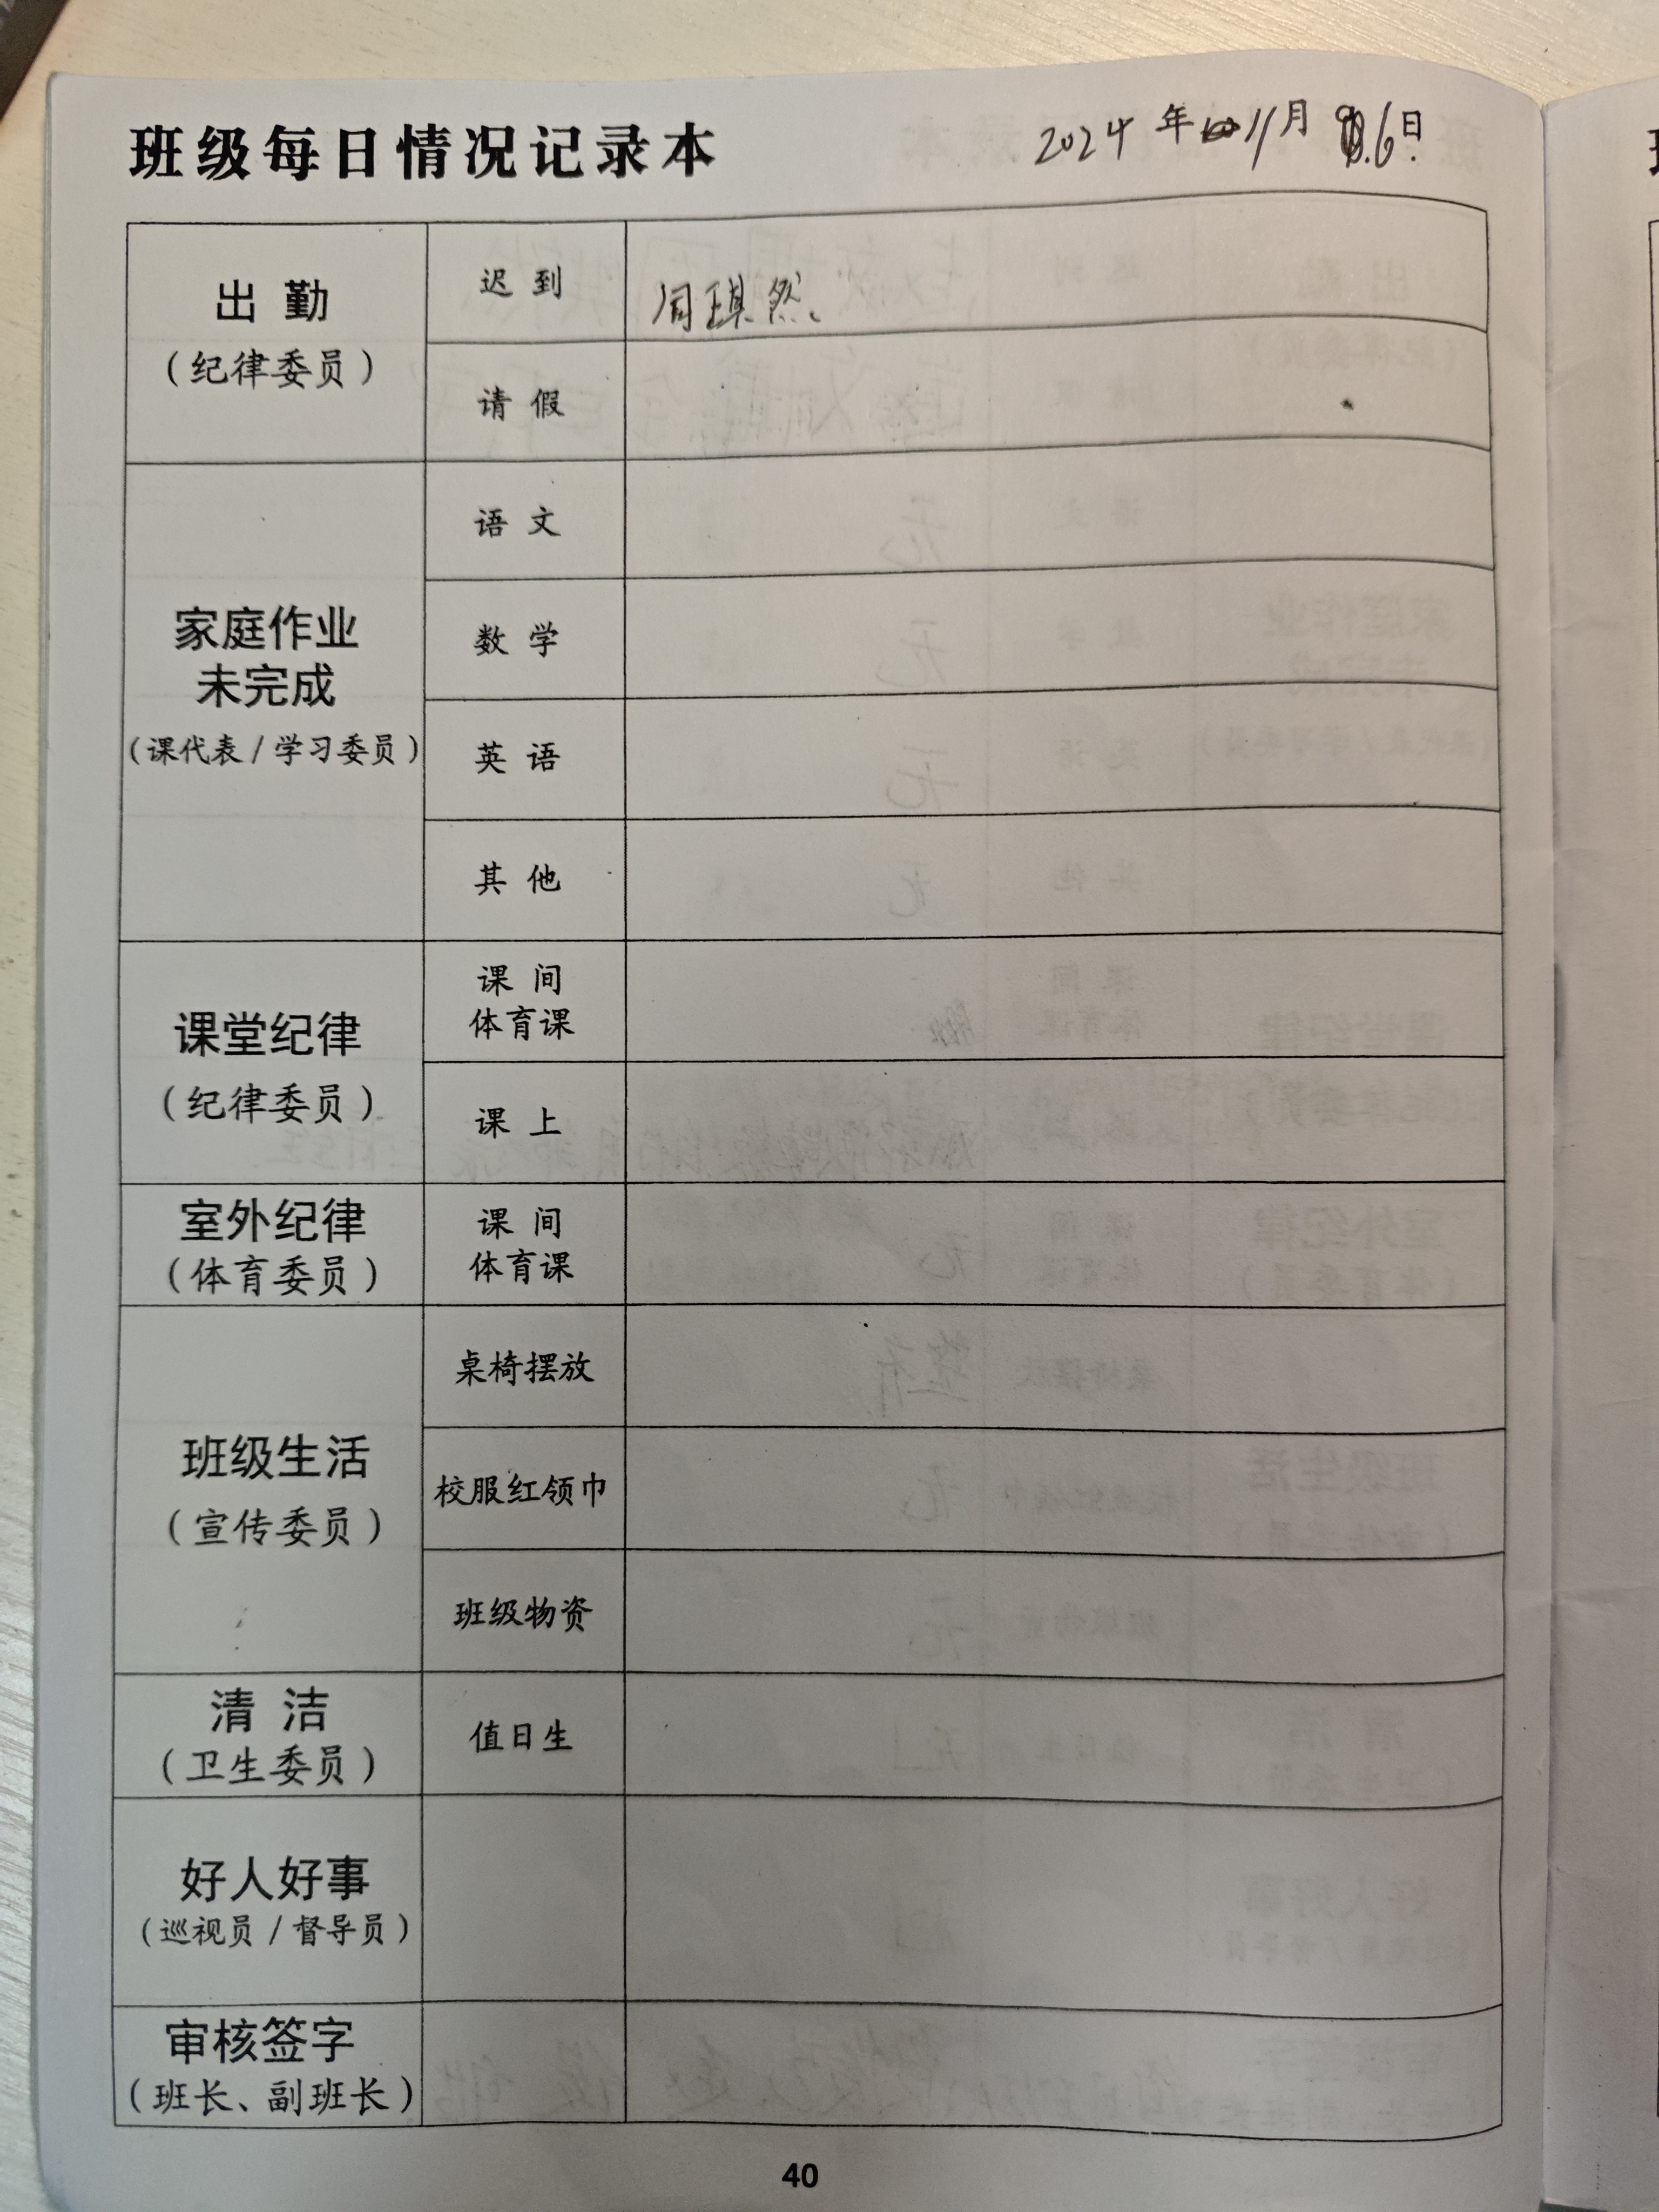 班级每日情况记录本
2024 年 11 月 6 日
出 勤
(纪律委员)
迟 到
周琪然、
请 假
家庭作业
未完成
(课代表 / 学习委员)
语 文
数 学
英 语
其 他
课堂纪律
(纪律委员)
课 间
体育课
课 上
室外纪律
(体育委员)
课 间
体育课
班级生活
(宣传委员)
桌椅摆放
校服红领巾
班级物资
清 洁
(卫生委员)
值日生
好人好事
(巡视员 / 督导员)
审核签字
(班长、副班长)
40